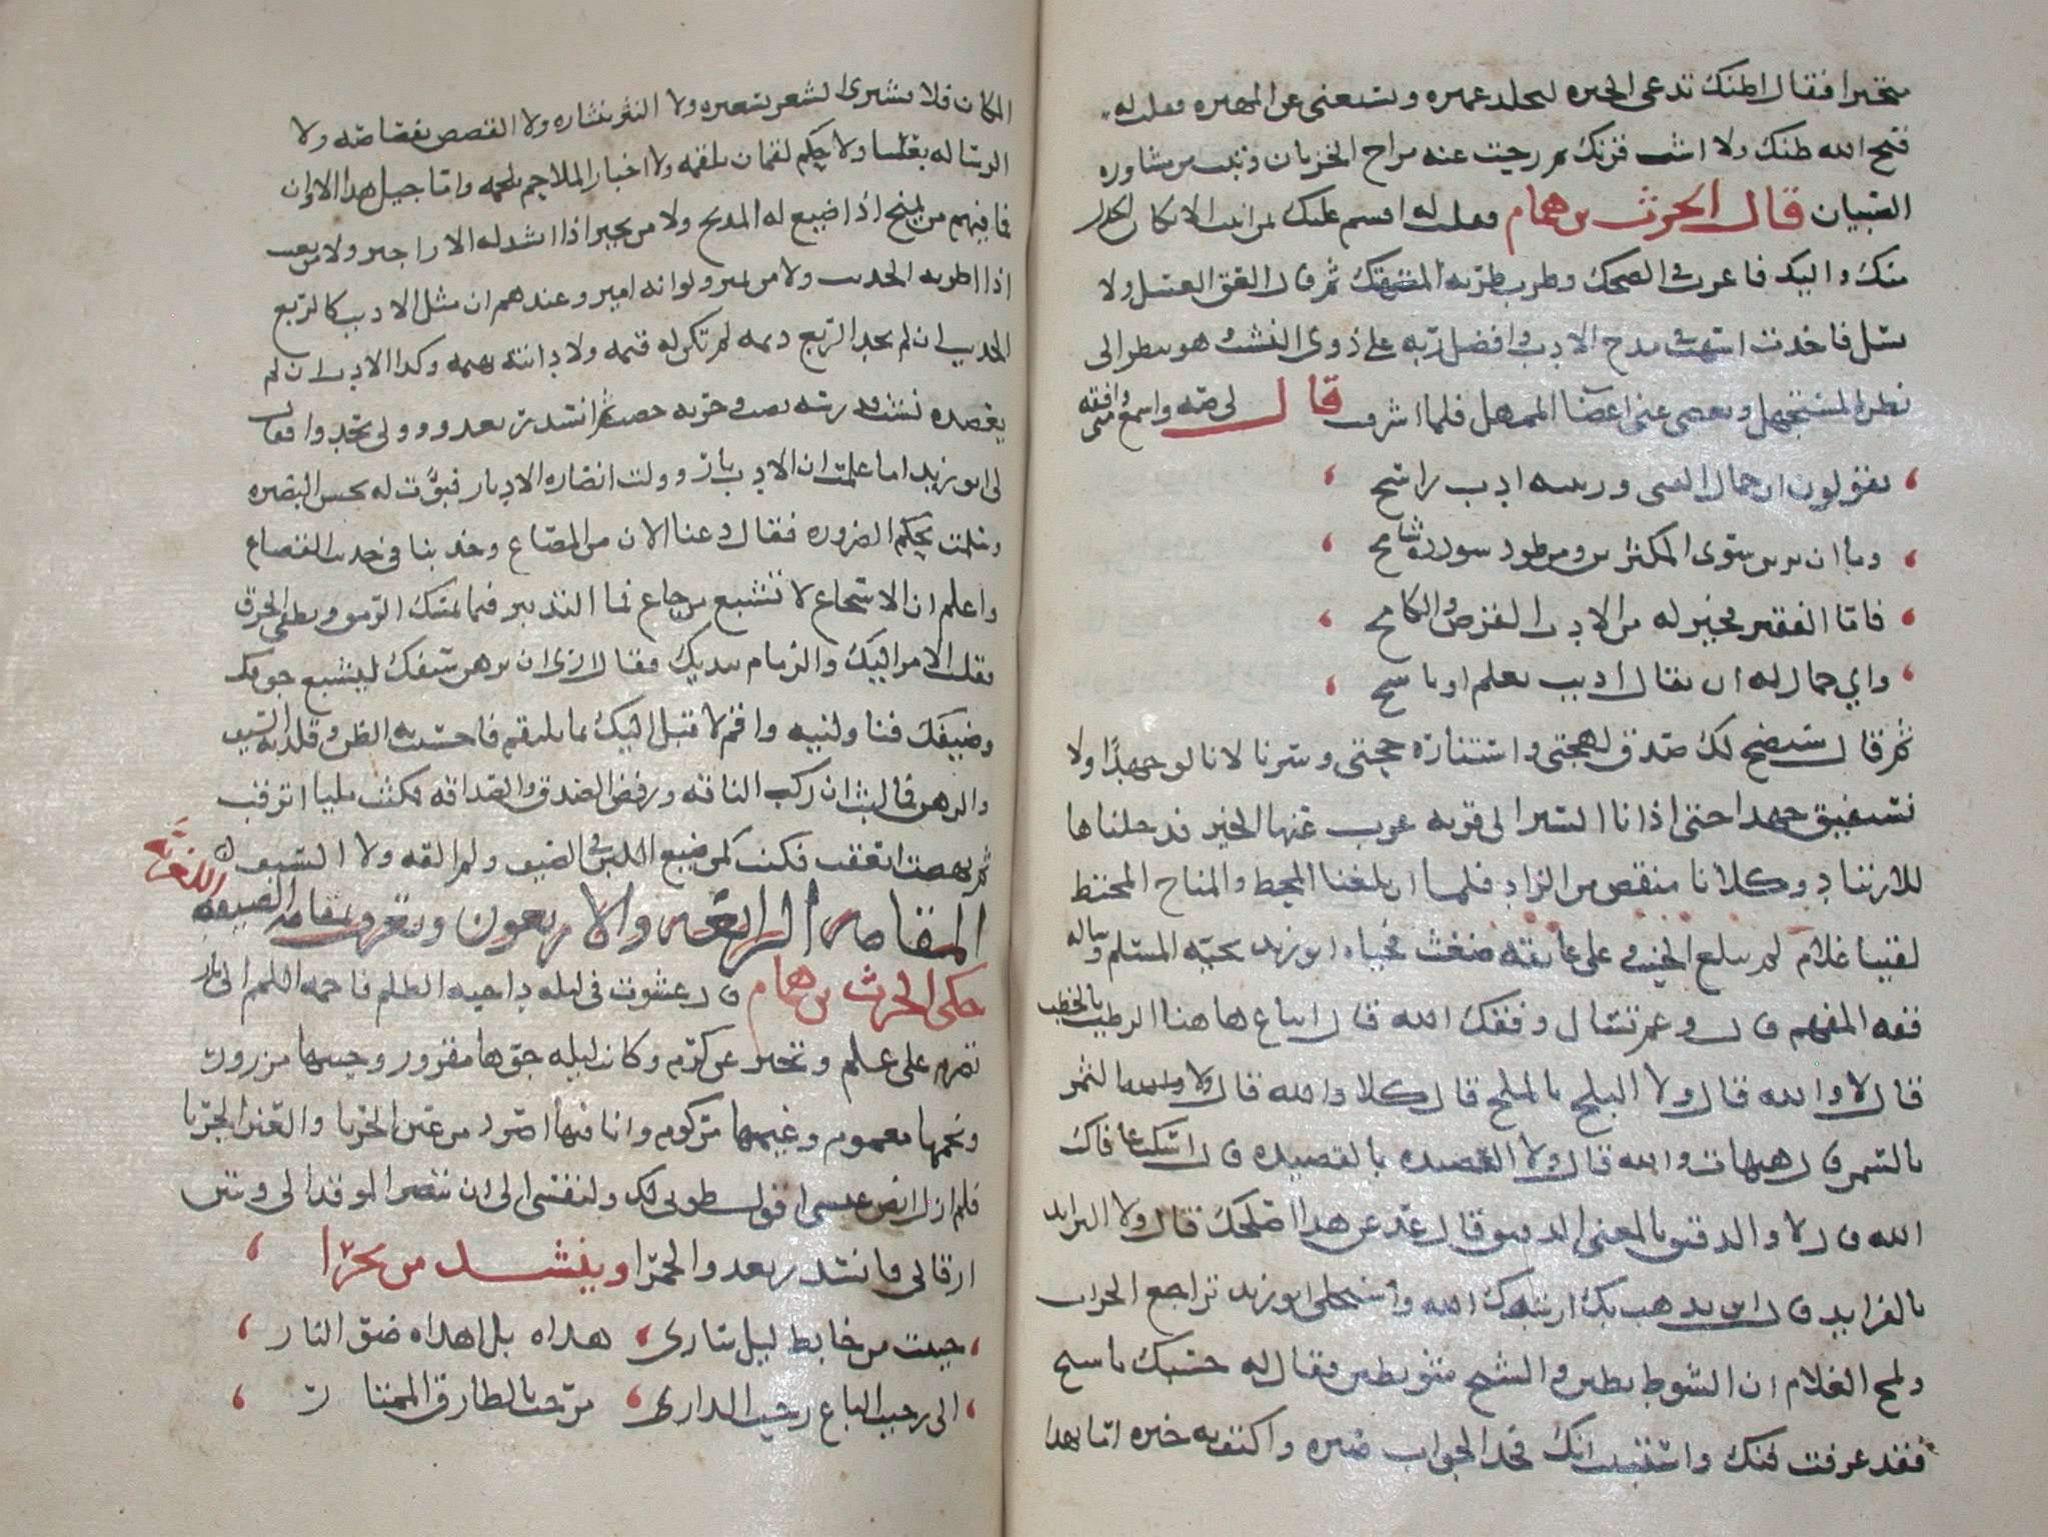 متخيرا فقال اظنك تدعى الحيره لجلد عميره وتستغنى عن المهيره فقلت له
قبح الله ظنك ولا اشب قرنك ثم رحت عنه مراح الخزيان وتبت من مشاوره
الصبيان قال الحرث بن همام فقلت له اقسم عليك بمن انبت الايك ان الجدل
منك واليك فاغرب في الضحك وطرب طربه المنهمك ثم قال العق العسل ولا
تسل فاخذت اسهب في مدح الادب وافضل ربه على ذوى النشب وهو ينظر الى
نظر المستجهل ويغضى عنى اغضا المتمهل فلما اشرف قال لى صه واسمع منى وافقه
يقولون ان جمال الفتى وزينته ادب راسخ
وما ان يزين سوى المكثرين ومن طود سودده شامخ
فاما الفقير فخير له من الادب القرص والكامخ
واي جمال له ان يقال اديب يعلم او ناسخ
ثم قال سيضح لك صدق لهجتى واستناره حجتى وسرنا لانالو جهدا ولا
نستفيق جهدا حتى ادانا السير الى قريه عزب عنها الخير فدخلناها
للارتياد وكلانا منفض من الزاد فلما ان بلغنا المحط والمناخ المختط
لقينا غلام لم يبلغ الحنث على عاتقه ضغث فحياه ابو زيد تحيه المسلم وساله
وقفه المفهم قال وعم تسال وفقك الله قال ايباع هاهنا الرطب بالخطب
قال لا والله قال ولا البلح بالملح قال كلا والله قال ولا الثمر
بالسمر قال هيهات والله قال ولا العصيده بالقصيده قال اسكت عافاك
الله قال ولا الدقيق بالمعنى الدقيق قال عد عن هذا اصلحك قال ولا الثرايد
بالفرايد قال اين يذهب بك ارشدك الله واستحلى ابو زيد تراجع الجواب
ولمح الغلام ان الشوط بطين والشيخ شويطين فقال له حسبك يا شيخ
فقد عرفت فنك واستبنت انك فخذ الجواب صبره واكتف به خبره اما بهذا
المكان فلا يشترى الشعر بشعيره ولا النثر بنثاره ولا القصص بقصاصه ولا
الرساله بغساله ولا حكم لقمان بلقمه ولا اخبار الملاحم بلحمه واما جيل هذا الاوان
فما فيهم من يميح اذا صيغ له المديح ولا من يجيز اذا انشد له الاراجيز ولا من يغيث
اذا اطربه الحديث ولا من يمير ولو انه امير وعندهم ان مثل الاديب كالربع
الجديب ان لم يجد الربع ديمه لم تكن له قيمه ولا دانته بهيمه وكذا الادب ان لم
يعضده نشب فدرسه نصب وحزبه حصب ثم انسدر يعدو وولى يحدو فقال
لى ابو زيد اما علمت ان الادب بار وولت انصاره الادبار فبؤت له بحسن البصيره
وسلمت بحكم الضروره فقال دعنا الان من المصاع وخذ بنا في حديث القصاع
واعلم ان الاسجاع لا تشبع من جاع فما التدبير فيما يمسك الرمق ويطفى الحرق
فقلت الامر اليك والزمام بيديك فقال ارى ان ترهن سيفك ليشبع جوفك
وضيفك فناولنيه واقم لانقلب اليك بما نلتقم فاحسنت به الظن وقلدته السيف
والرهن فما لبث ان ركب الناقه ورفض الصدق والصداقه فمكثت مليا اترقبه
ثم نهضت اتعقبه فكنت كمن ضيع اللبن في الصيف ولم القه ولا السيف
المقامه الرابعه والاربعون وتعرف بمقامه الصيفيه اللغزيه
حكى الحرث بن همام قال عشوت في ليله داجيه الظلم فاحمه اللمم الى نار
تضرم على علم وتخبر عن كرم وكانت ليله جوها مقرور وجيبها مزرور
ونجمها مغموم وغيمها مركوم وانا فيها اصرد من عين الحربا والعنز الجربا
فلم ازل انص عنسى اقول طوبى لك ولنفسى الى ان تبصر الموقد الى وتبين
ارقالى فانسدر يعدو الجمزا وينشد مرتجزا
حييت من خابط ليل سارى هداه بل اهداه ضو النار
الى رحيب الباع رحيب الدارى مرحب بالطارق الممتار